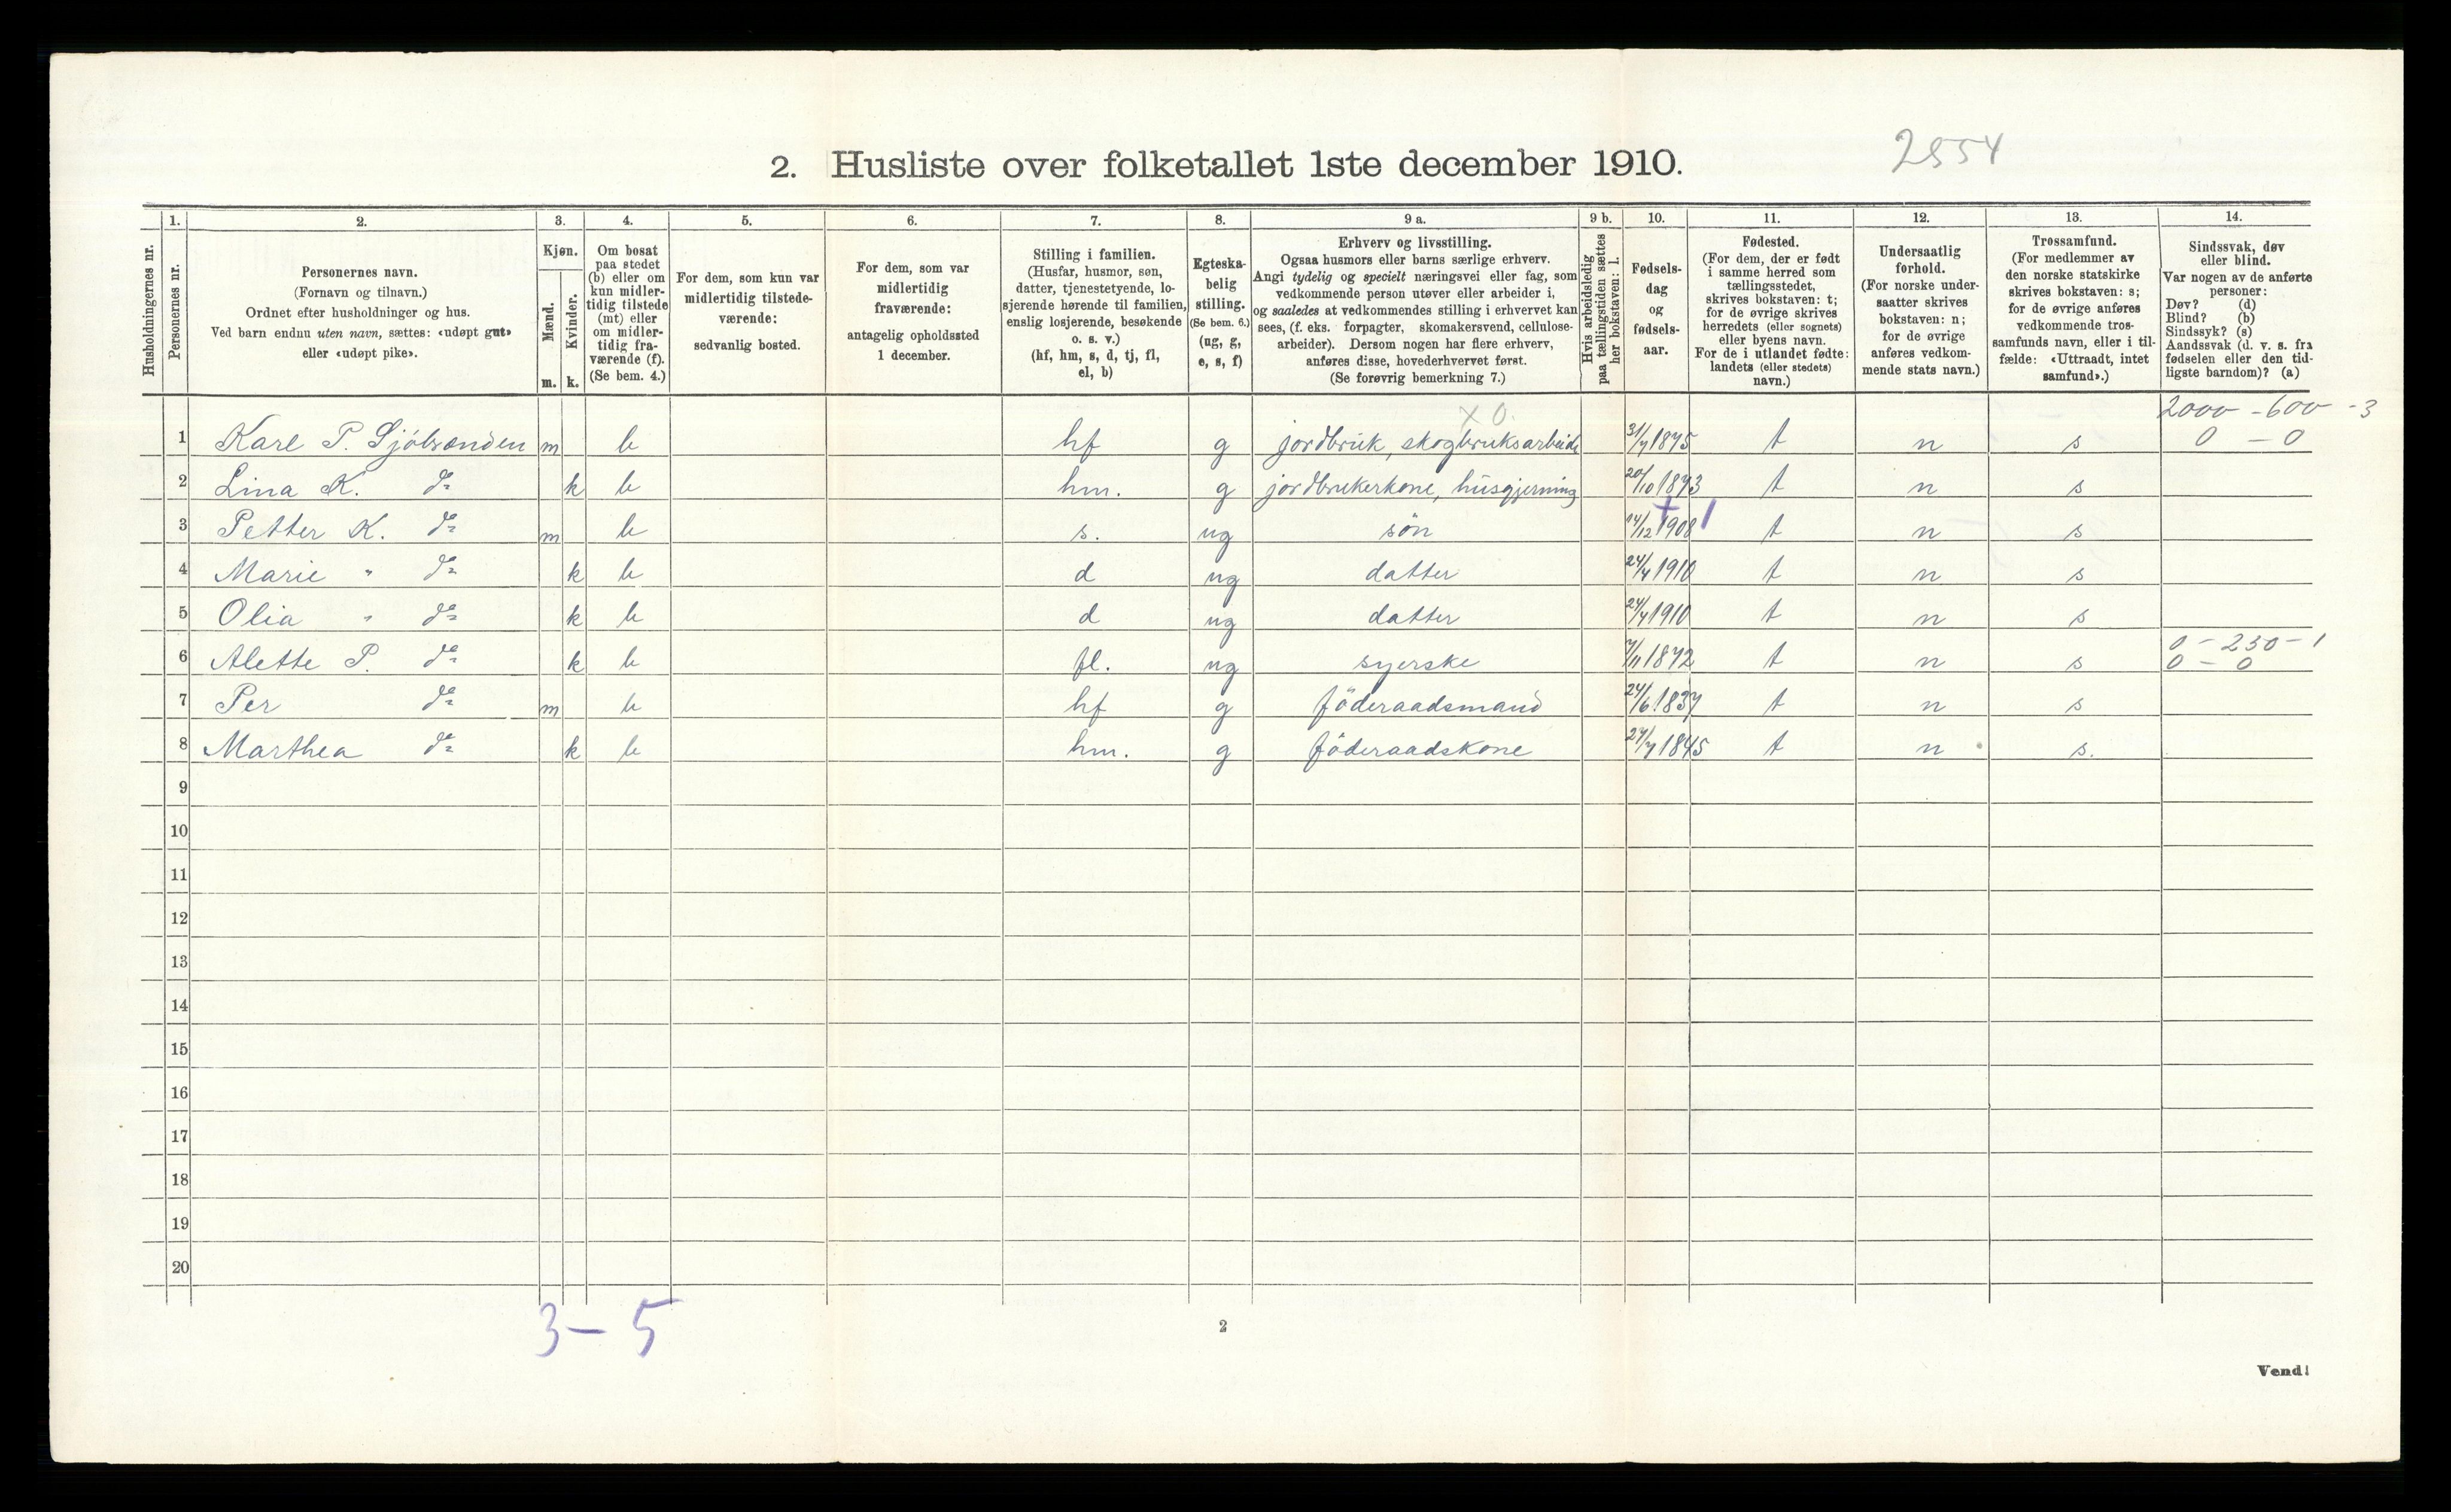 2. Husliste over folketallet 1ste december 1910.
2554
Husholdningernes nr.
1. Personernes nr.
2. Personernes navn.
(Fornavn og tilnavn.)
Ordnet efter husholdninger og hus.
Ved barn endnu uten navn, sættes: «udøpt gut»
eller «udøpt pike».
3. Kjøn.
Mænd. m.
Kvinder. k.
4. Om bosat
paa stedet
(b) eller om
kun midler-
tidig tilstede
(mt) eller
om midler-
tidig fra-
værende (f).
(Se bem. 4.)
5. For dem, som kun var
midlertidig tilstede-
værende:
sedvanlig bosted.
6. For dem, som var
midlertidig
fraværende:
antagelig opholdssted
1 december.
7. Stilling i familien.
(Husfar, husmor, søn,
datter, tjenestetyende, lo-
sjerende hørende til familien,
enslig losjerende, besøkende
o. s. v.)
(hf, hm, s, d, tj, fl,
el, b)
8. Egteska-
belig
stilling.
(Se bem. 6.)
(ug, g,
e, s, f)
9 a. Erhverv og livsstilling.
Ogsaa husmors eller barns særlige erhverv.
Angi tydelig og specielt næringsvei eller fag, som
vedkommende person utøver eller arbeider i,
og saaledes at vedkommendes stilling i erhvervet kan
sees, (f. eks. forpagter, skomakersvend, cellulose-
arbeider). Dersom nogen har flere erhverv,
anføres disse, hovederhvervet først.
(Se forøvrig bemerkning 7.)
9 b. Hvis arbeidsledig
paa tællingstiden sættes
her bokstaven: l.
10. Fødsels-
dag
og
fødsels-
aar.
11. Fødested.
(For dem, der er født
i samme herred som
tællingsstedet,
skrives bokstaven: t;
for de øvrige skrives
herredets (eller sognets)
eller byens navn.
For de i utlandet fødte:
landets (eller stedets)
navn.)
12. Undersaatlig
forhold.
(For norske under-
saatter skrives
bokstaven: n;
for de øvrige
anføres vedkom-
mende stats navn.)
13. Trossamfund.
(For medlemmer av
den norske statskirke
skrives bokstaven: s;
for de øvrige anføres
vedkommende tros-
samfunds navn, eller i til-
fælde: «Uttraadt, intet
samfund».)
14. Sindssvak, døv
eller blind.
Var nogen av de anførte
personer:
Døv? (d)
Blind? (b)
Sindssyk? (s)
Aandssvak (d. v. s. fra
fødselen eller den tid-
ligste barndom)? (a)
X 0. 2000 - 600 - 3
1 Karl P. Sjölsanden m b hf g jordbruk, skogbruksarbeide 31/7 1875 t n s 0 - 0
2 Lina K. do k b hm. g jordbrukerkone, husgjerning 20/10 1873 t n s
3 Petter K. do m b s. ug sön 14/12 1908 1 t n s
4 Marie " do k b d ug datter 24/4 1910 t n s
5 Olia " do k b d ug datter 24/4 1910 t n s
0 - 230 - 1
6 Alette P. do k b fl. ug syerske 7/11 1872 t n s 0 - 0
7 Per do m b hf g föderaadsmand 24/6 1837 t n s
8 Marthea do k b hm. g föderaadskone 27/7 1845 t n s.
9
10
11
12
13
14
15
16
17
18
19
20
3 - 5
2
Vend!